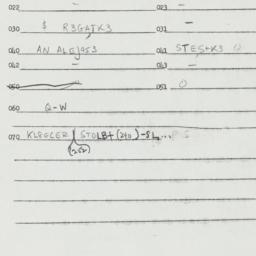 022 - 023 -
030 $ R3GATK3 031 -
040 AN ALEJ953 041 STES+K3 0
042 - 043 -
050 051 0
060 Q-W
070 KLEGLER STOLB+(240)-SL...
(252)